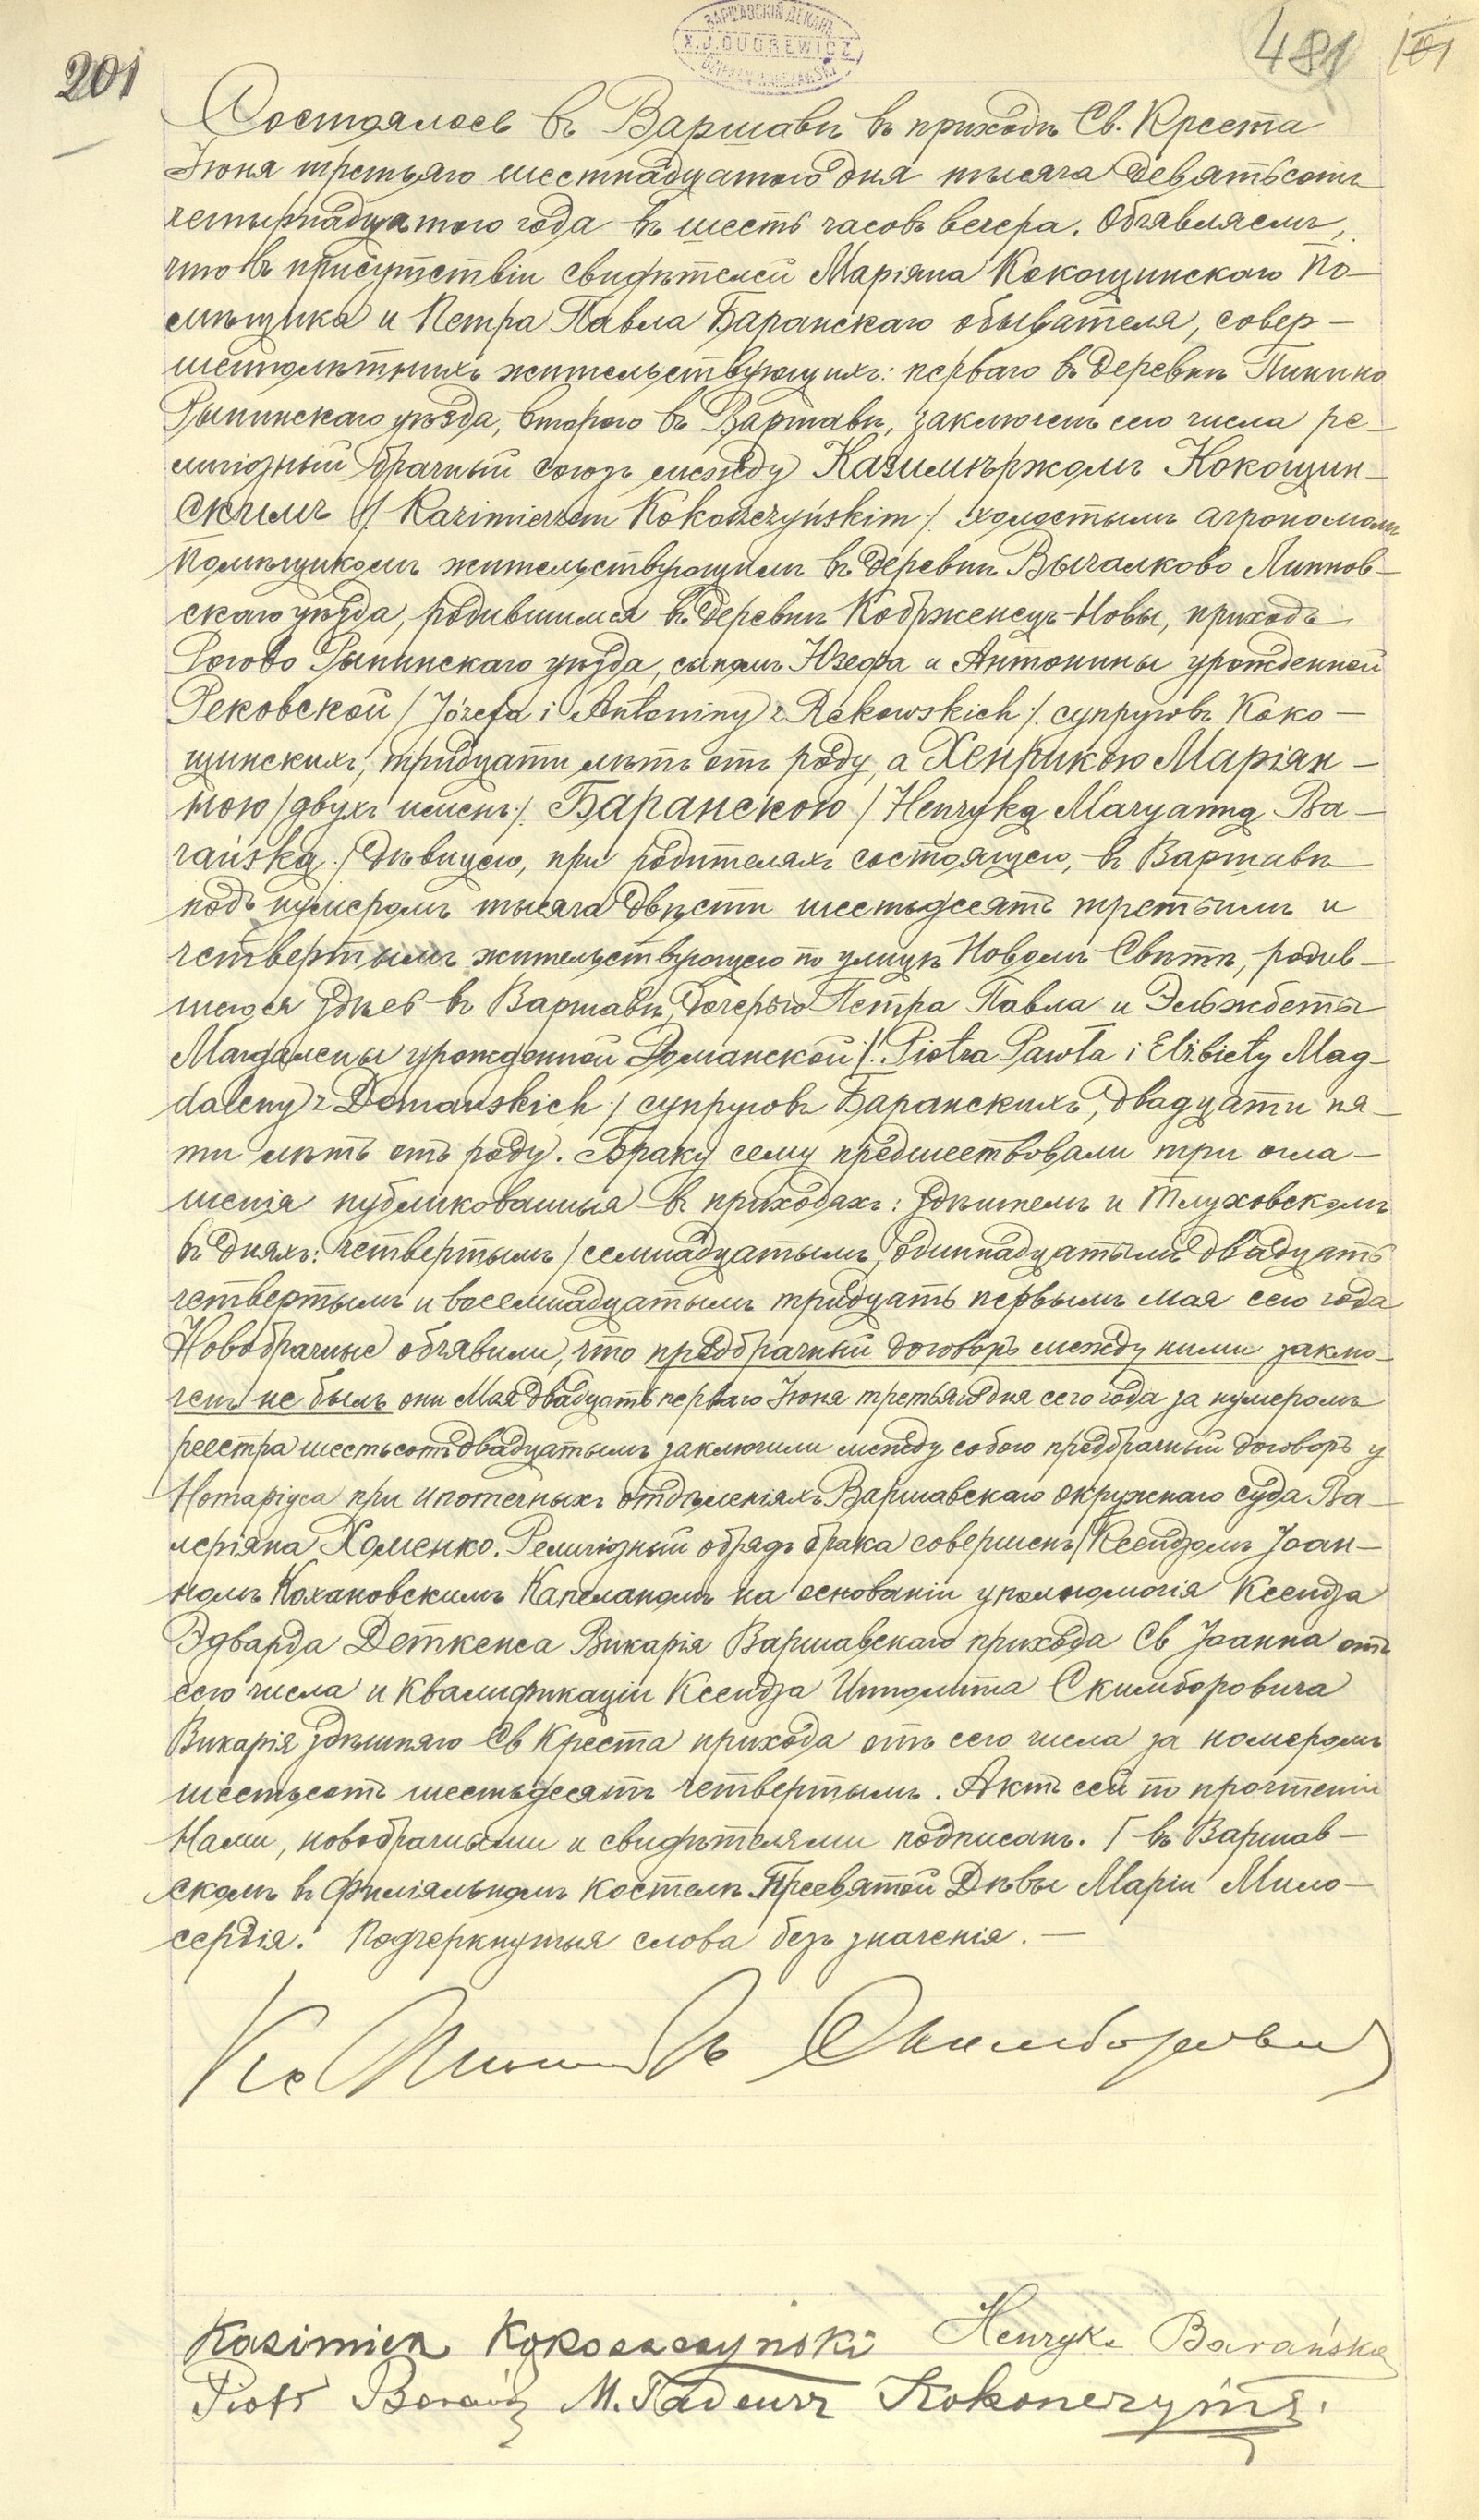 ВАРШАВСКІЙ ДЕКАНЪ
X. J. DUDREWICZ
201
481
Состоялось въ Варшавѣ въ приходѣ Св. Креста
Іюня третьяго шестнадцатого дня тысяча девятьсотъ
четырнадцатого года въ шесть часовъ вечера. Объявляемъ,
что въ присутствіи свидѣтелей Маріяна Кокощинскаго по-
мѣщика и Петра Павла Баранскаго обывателя, совер-
шеннолѣтнихъ жительствующихъ: перваго въ деревнѣ Пинино
Рыпинскаго уѣзда, второго въ Варшавѣ, заключенъ сего числа ре-
лигіозный брачный союзъ между Казимѣржомъ Кокощин-
скимъ /Kazimierzem Kokoszczyńskim/ холостымъ агрономомъ
помѣщикомъ жительствующимъ въ деревнѣ Вычалково Липнов-
скаго уѣзда, родившимся въ деревнѣ Кобрженецъ-Новы, приходъ
Рогово Рыпинскаго уѣзда, сыномъ Юзефа и Антонины урожденной
Рековской /Józefa i Antoniny z Rekowskich/ супруговъ Коко-
щинскихъ, тридцати лѣтъ отъ роду, а Хенрикою Маріян-
ною /двухъ именъ/ Баранскою /Henryką Maryanną Ba-
rańską/ дѣвицею, при родителяхъ состоящею, въ Варшавѣ
подъ нумеромъ тысяча двѣсти шестьдесятъ третьимъ и
четвертымъ жительствующею по улицѣ Новомъ Свѣтѣ, родив-
шеюся здѣсь въ Варшавѣ, дочерью Петра Павла и Эльжбеты
Магдалены урожденной Доманской /Piotra Pawła i Elżbiety Mag-
daleny z Domańskich/ супруговъ Баранскихъ, двадцати пя-
ти лѣтъ отъ роду. Браку сему предшествовали три огла-
шенія публикованныя въ приходахъ: здѣшнемъ и Тлуховскомъ
въ дняхъ: четвертымъ /семнадцатымъ, одиннадцатымъ двадцать
четвертымъ и восемнадцатымъ тридцать первымъ мая сего года
Новобрачные объявили, что предбрачный договоръ между ними заклю-
ченъ не былъ они Мая двадцать перваго Іюня третьяго дня сего года за нумеромъ
реестра шестьсотъ двадцатымъ заключили между собою предбрачный договоръ у
Нотаріуса при ипотечныхъ отдѣленіяхъ Варшавскаго окружнаго суда Ва-
леріяна Хоменко. Религіозный обрядъ брака совершенъ Ксендзомъ Іоан-
номъ Кохановскимъ Капеланомъ на основаніи уполномочія Ксендза
Эдварда Деткенса Викарія Варшавскаго прихода Св Іоанна отъ
сего числа и квалификаціи Ксендза Ипполита Скимборовича
Викарія здѣшняго Св Креста прихода отъ сего числа за номеромъ
шестьсотъ шестьдесятъ четвертымъ. Актъ сей по прочтеніи
Нами, новобрачными и свидѣтелями подписанъ. Г въ Варшав-
скомъ въ филіяльномъ костелѣ Пресвятой Дѣвы Маріи Мило-
сердія. Подчеркнутыя слова безъ значенія.—
Кс Ипполитъ Скимборович
Kazimierz Kokoszczyński Henryka Barańska
Piotr Barański M. Tadeusz Kokoszczyński.